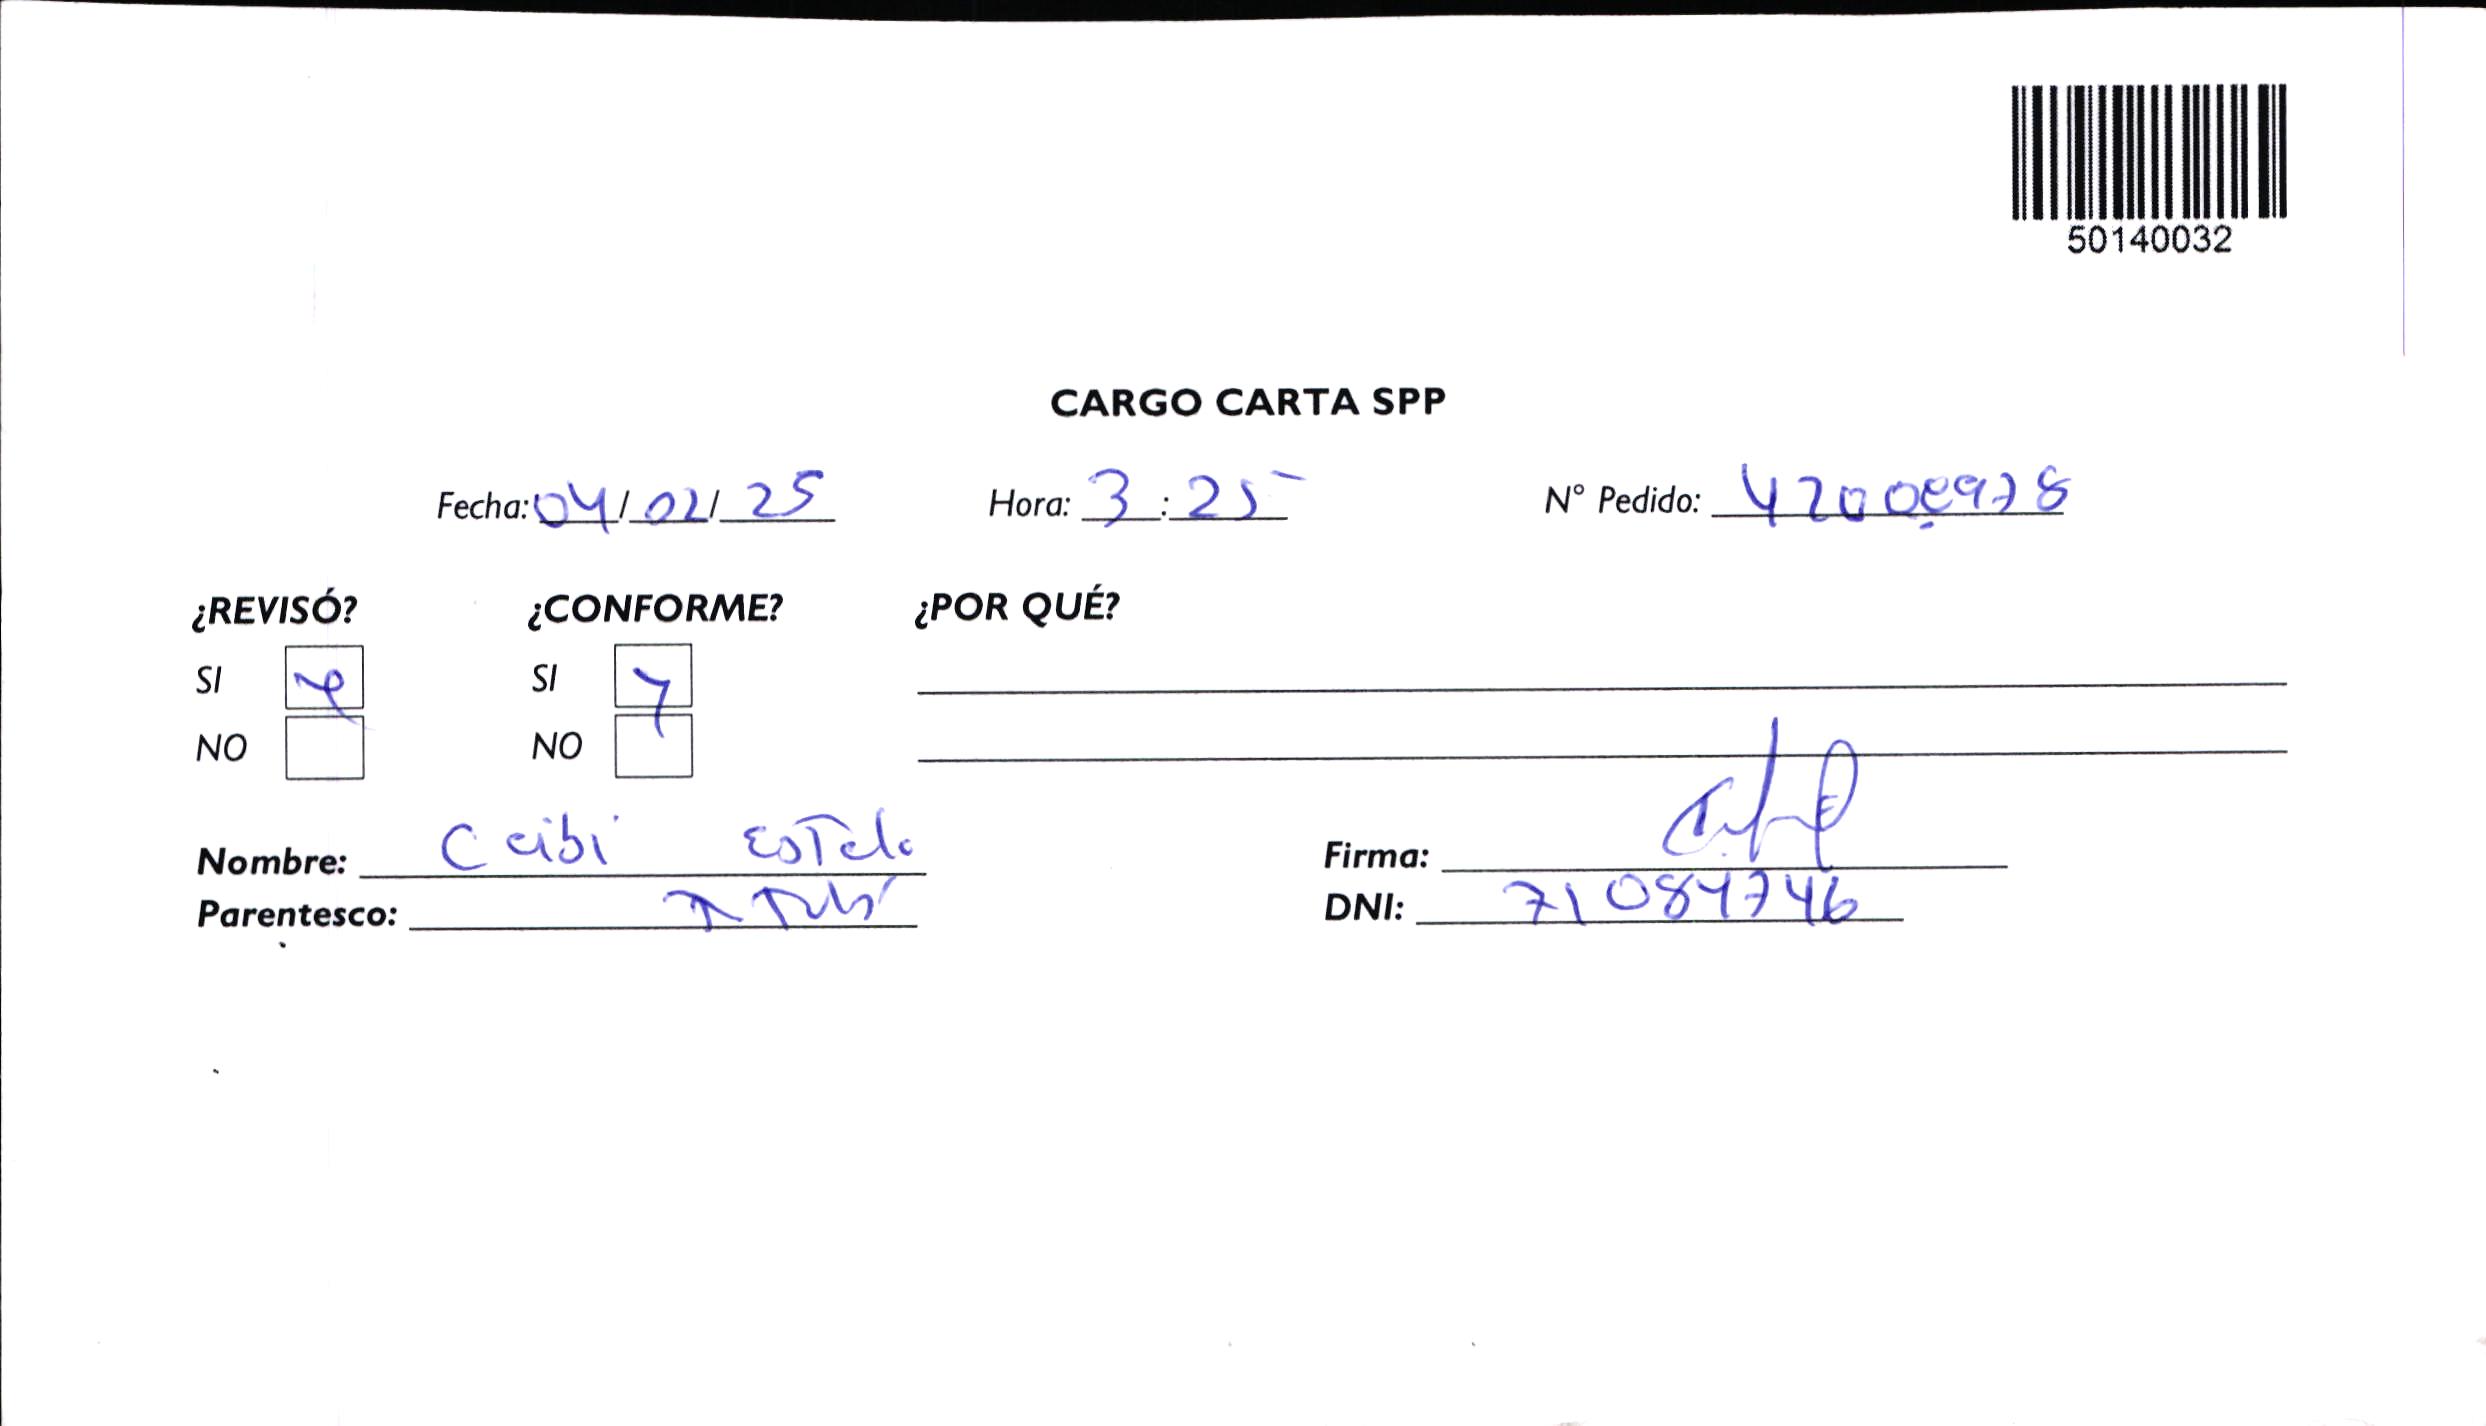 50140032
CARGO CARTA SPP
Fecha: 04/02/25 Hora: 3:25 N° Pedido: 42008978
¿REVISÓ? ¿CONFORME? ¿POR QUÉ?
SI SI
NO NO
Nombre: Ceibi Estela Firma:
Parentesco: DNI: 71084746